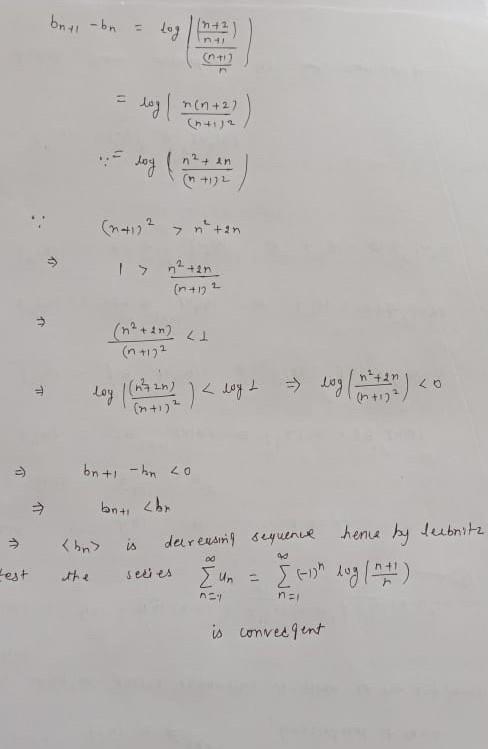 bn+1 - bn = log(((n+2)/(n+1))/((n+1)/n))
= log(n(n+2)/(n+1)²)
∵ = log((n²+2n)/(n+1)²)
∵ (n+1)² > n²+2n
⇒ 1 > (n²+2n)/(n+1)²
⇒ (n²+2n)/(n+1)² < 1
⇒ log((n²+2n)/(n+1)²) < log 1 ⇒ log((n²+2n)/(n+1)²) < 0
⇒ bn+1 - bn < 0
⇒ bn+1 < bn
⇒ <bn> is decreasing sequence hence by leibnitz
test the series ∞∑n=1 un = ∞∑n=1 (-1)ⁿ log((n+1)/n)
is convergent